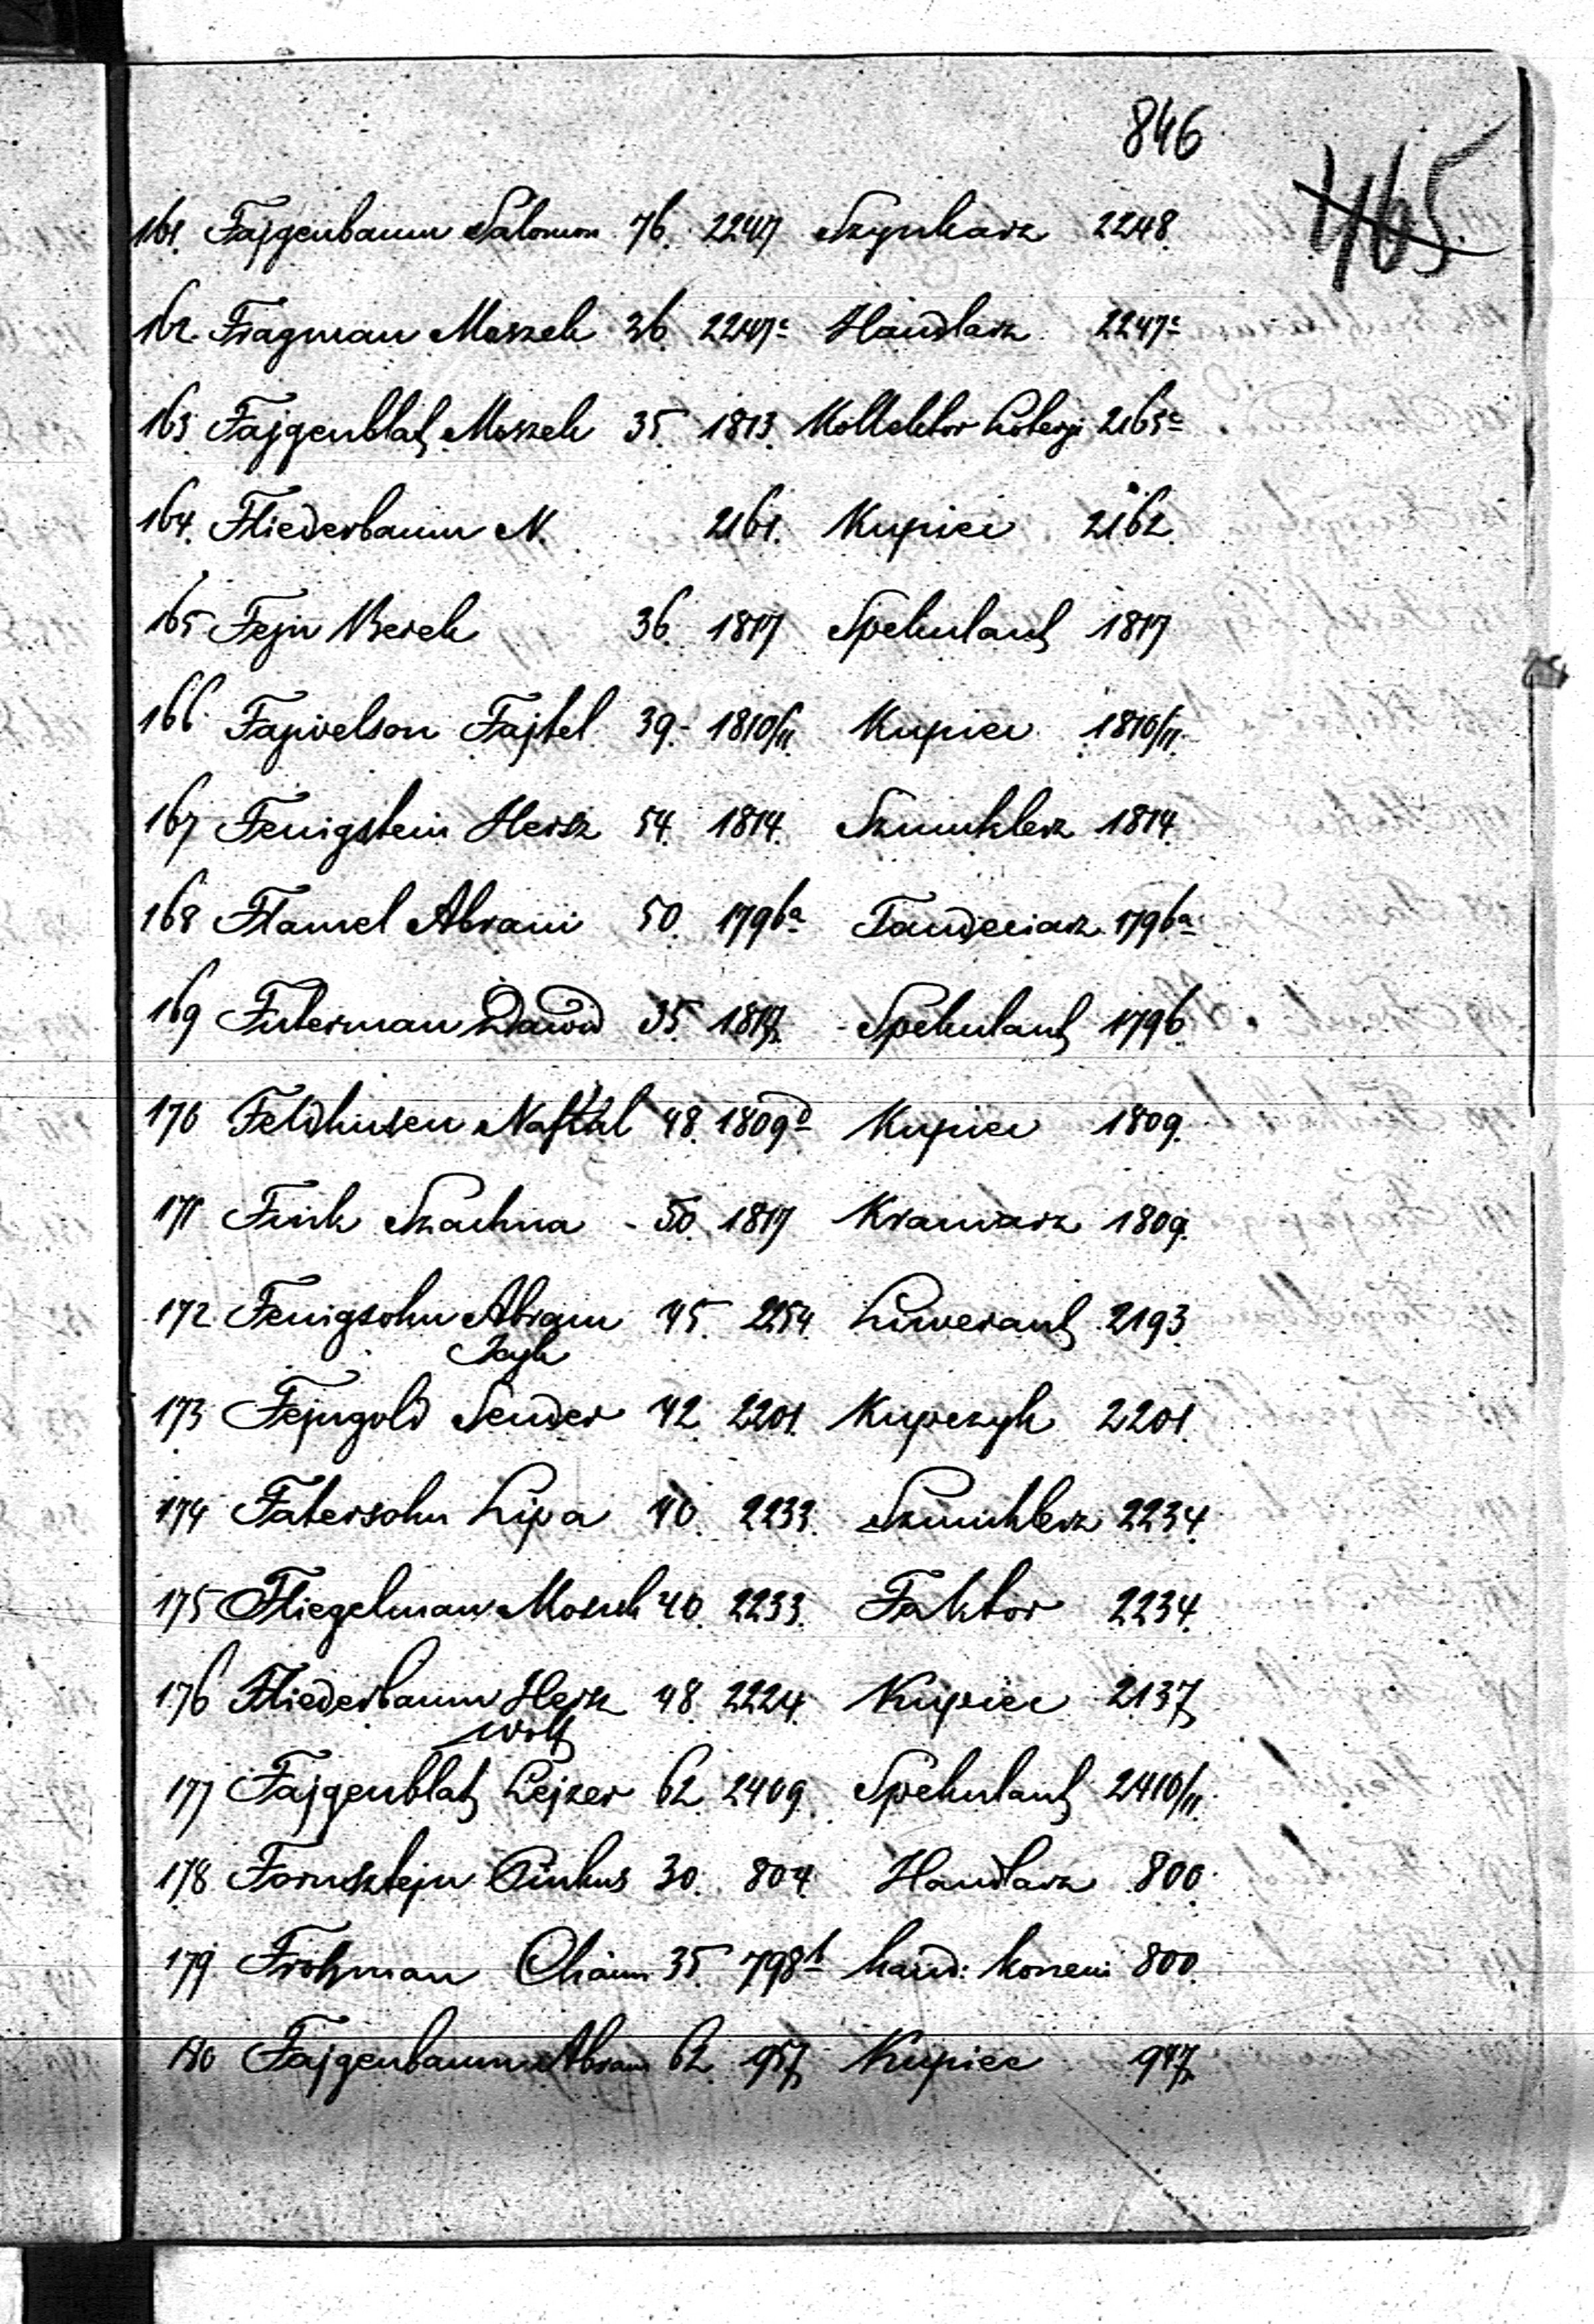 846
465
161. Fajgenbaum Salomon 76. 2247 Szynkarz 2248.
162. Fragman Moszek 36. 2247c Handlarz 2247c
163. Fajgenblat Moszek 35. 1813. Kollektor Loteryi 2165c
164. Fliederbaum N. 2161. Kupiec 2162.
165 Fejn Berek 36. 1817 Spekulant 1817
166. Fajwelson Fajtel 39.- 1810/11 Kupiec 1810/11.
167 Fenigstein Hersz 54. 1814. Szmuklerz 1814.
168 Flamel Abram 50. 1796a Tandeciarz 1796a
169 Futerman Dawid 35. 1817 Spekulant 1796
170 Feldhusen Naftal 48. 1809d Kupiec 1809.
171 Fink Szachna - 50. 1817 Kramarz 1809.
172 Fenigsohn Abram 45. 2154 Liwerant 2193
Icyk
173 Fejngold Sender 42 2201. Kupczyk 2201.
174 Fatersohn Lipa 40. 2233. Szmuklerz 2234.
175 Fliegelman Moszek 40. 2233. Faktor 2234.
176 Fliederbaum Hersz 48. 2224. Kupiec 2137
Wolf
177 Fajgenblat Lejzer 62. 2409. Spekulant 2410/11.
178 Fornsztejn Pinkus 30. 804. Handlarz 800.
179. Frohman Chaim 35. 798b hand: korzeni 800.
180 Fajgenbaum Abram 62. 957 Kupiec 947